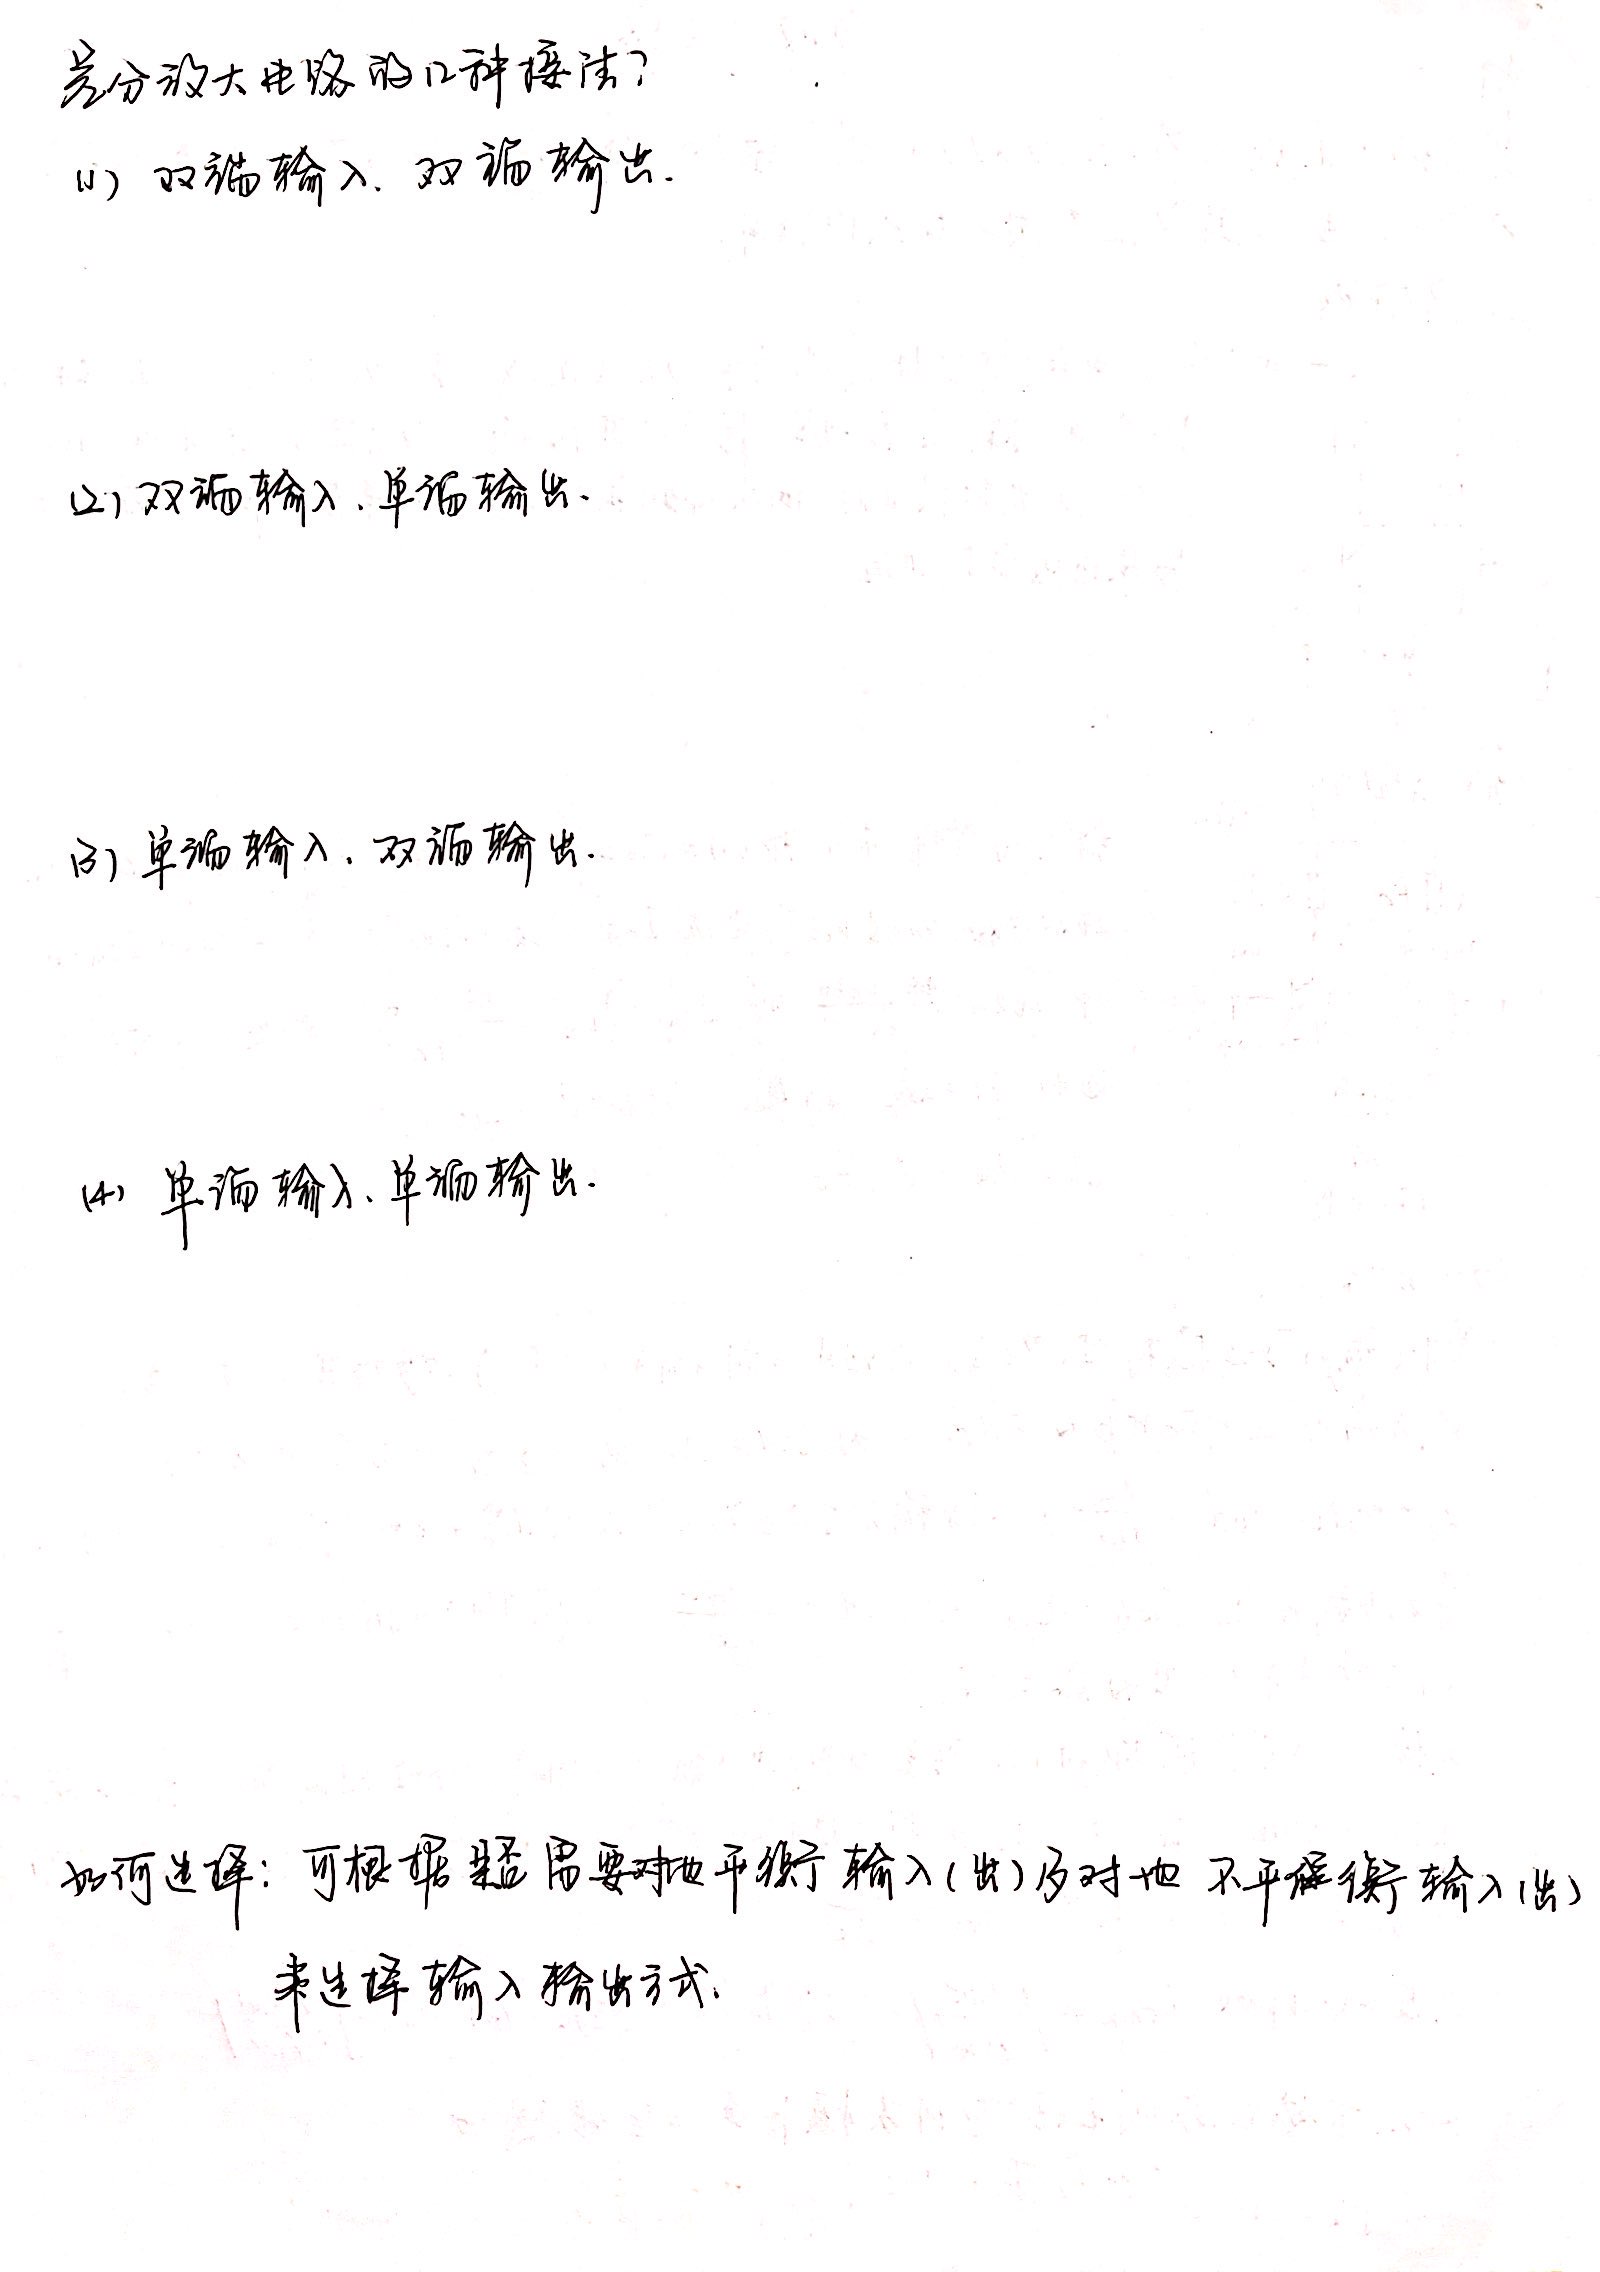 差分放大电路的几种接法?
(1) 双端输入、双端输出.
(2) 双端输入、单端输出.
(3) 单端输入、双端输出.
(4) 单端输入、单端输出.
如何选择: 可根据是否需要对地平衡输入(出)及对地不平衡输入(出)
来选择输入输出方式.